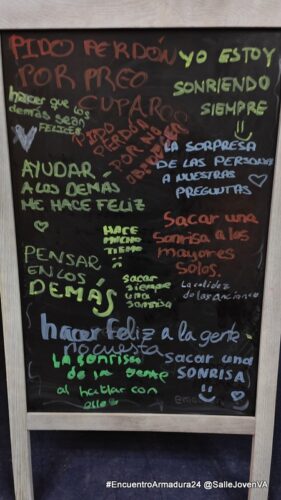 PIDO PERDÓN
POR PREO
CUPAROS
YO ESTOY
SONRIENDO
SIEMPRE
hacer que los
demás sean
FELICES
PIDO
PERDÓN
POR NO
LA SORPRESA
DE LAS PERSONAS
A NUESTRAS
PREGUNTAS
AYUDAR
A LOS DEMÁS
ME HACE FELIZ
Sacar una
sonrisa a los
mayores
solos.
HACE
MUCHO
TIEMPO
La calidez
de los ancianos
PENSAR
EN LOS
DEMÁS
sacar
siempre
una
sonrisa
hacer feliz a la gente
no cuesta
La sonrisa
de la gente
al hablar con
ellos
sacar una
SONRISA
#EncuentroArmadura24 @SalleJovenVA